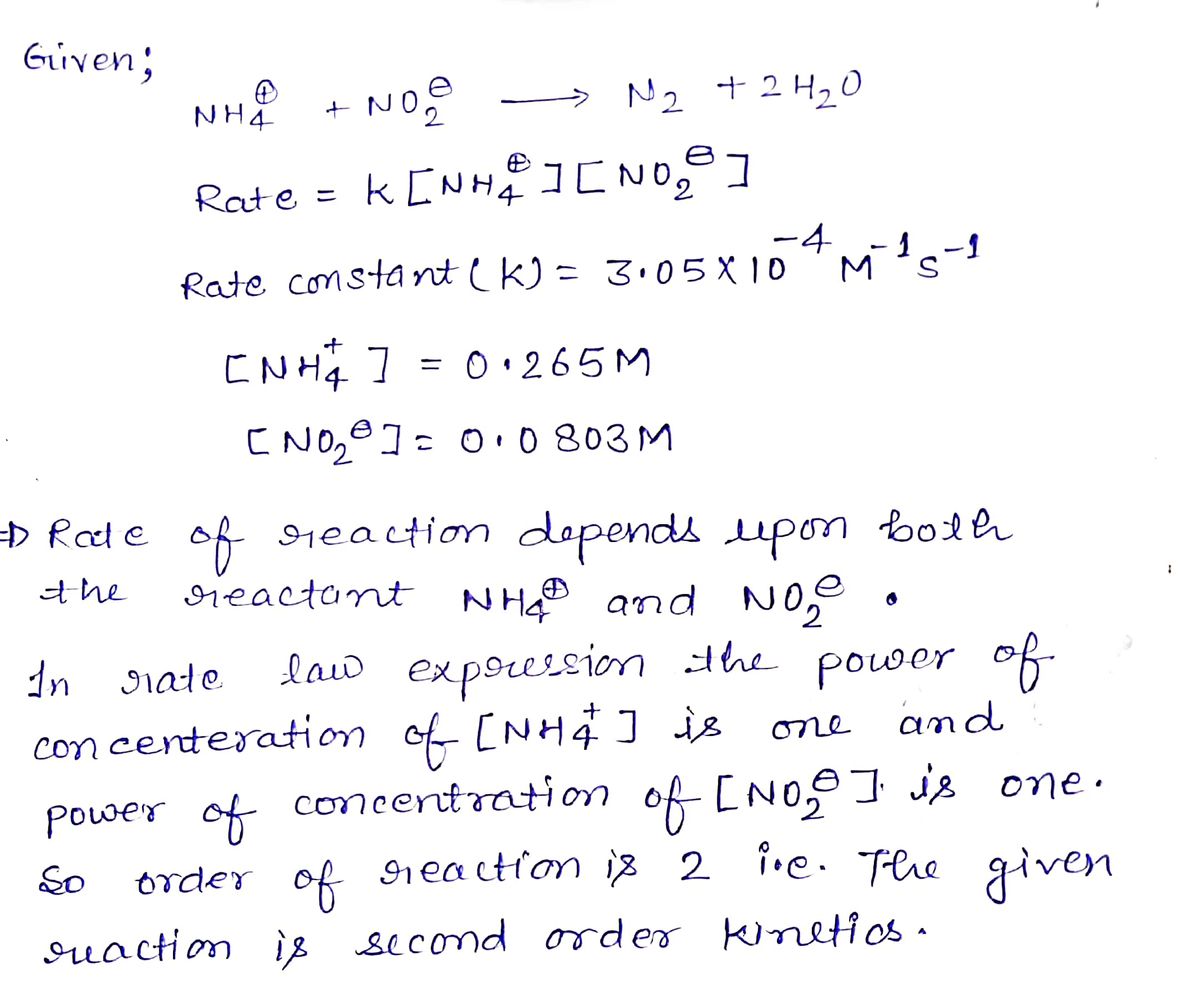 Given;
NH₄⊕ + NO₂⊖ → N₂ + 2H₂O
Rate = k[NH₄⊕][NO₂⊖]
Rate constant (k) = 3.05 X 10⁻⁴ M⁻¹s⁻¹
[NH₄⁺] = 0.265M
[NO₂⊖] = 0.0803M
⇒ Rate of reaction depends upon both
the reactant NH₄⊕ and NO₂⊖.
In rate law expression the power of
concenteration of [NH₄⁺] is one and
power of concentration of [NO₂⊖] is one.
So order of reaction is 2 i.e. The given
reaction is second order kinetics.